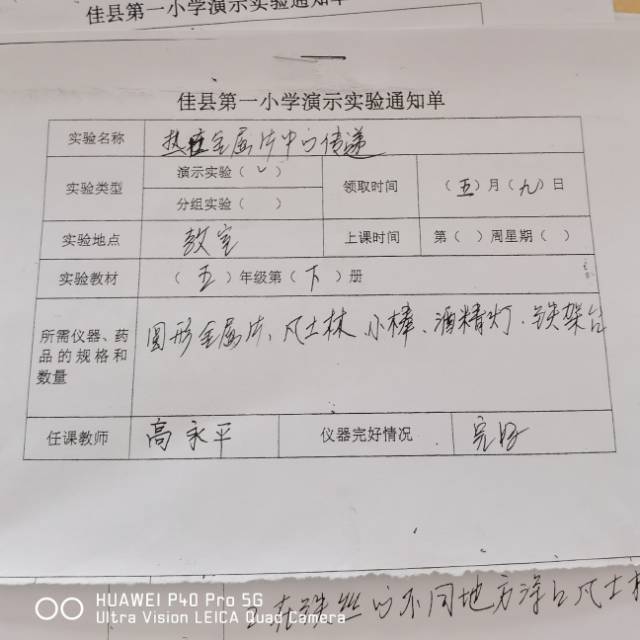 佳县第一小学演示实验通知单
佳县第一小学演示实验通知单
实验名称 热在金属片中的传递
实验类型 演示实验（✓） 领取时间 （五）月（九）日
分组实验（ ）
实验地点 教室 上课时间 第（ ）周星期（ ）
实验教材 （五）年级第（下）册
所需仪器、药品的规格和数量 圆形金属片、凡士林、小棒、酒精灯、铁架台
任课教师 高永平 仪器完好情况 完好
在铁丝的不同地方涂上凡士林
HUAWEI P40 Pro 5G
Ultra Vision LEICA Quad Camera